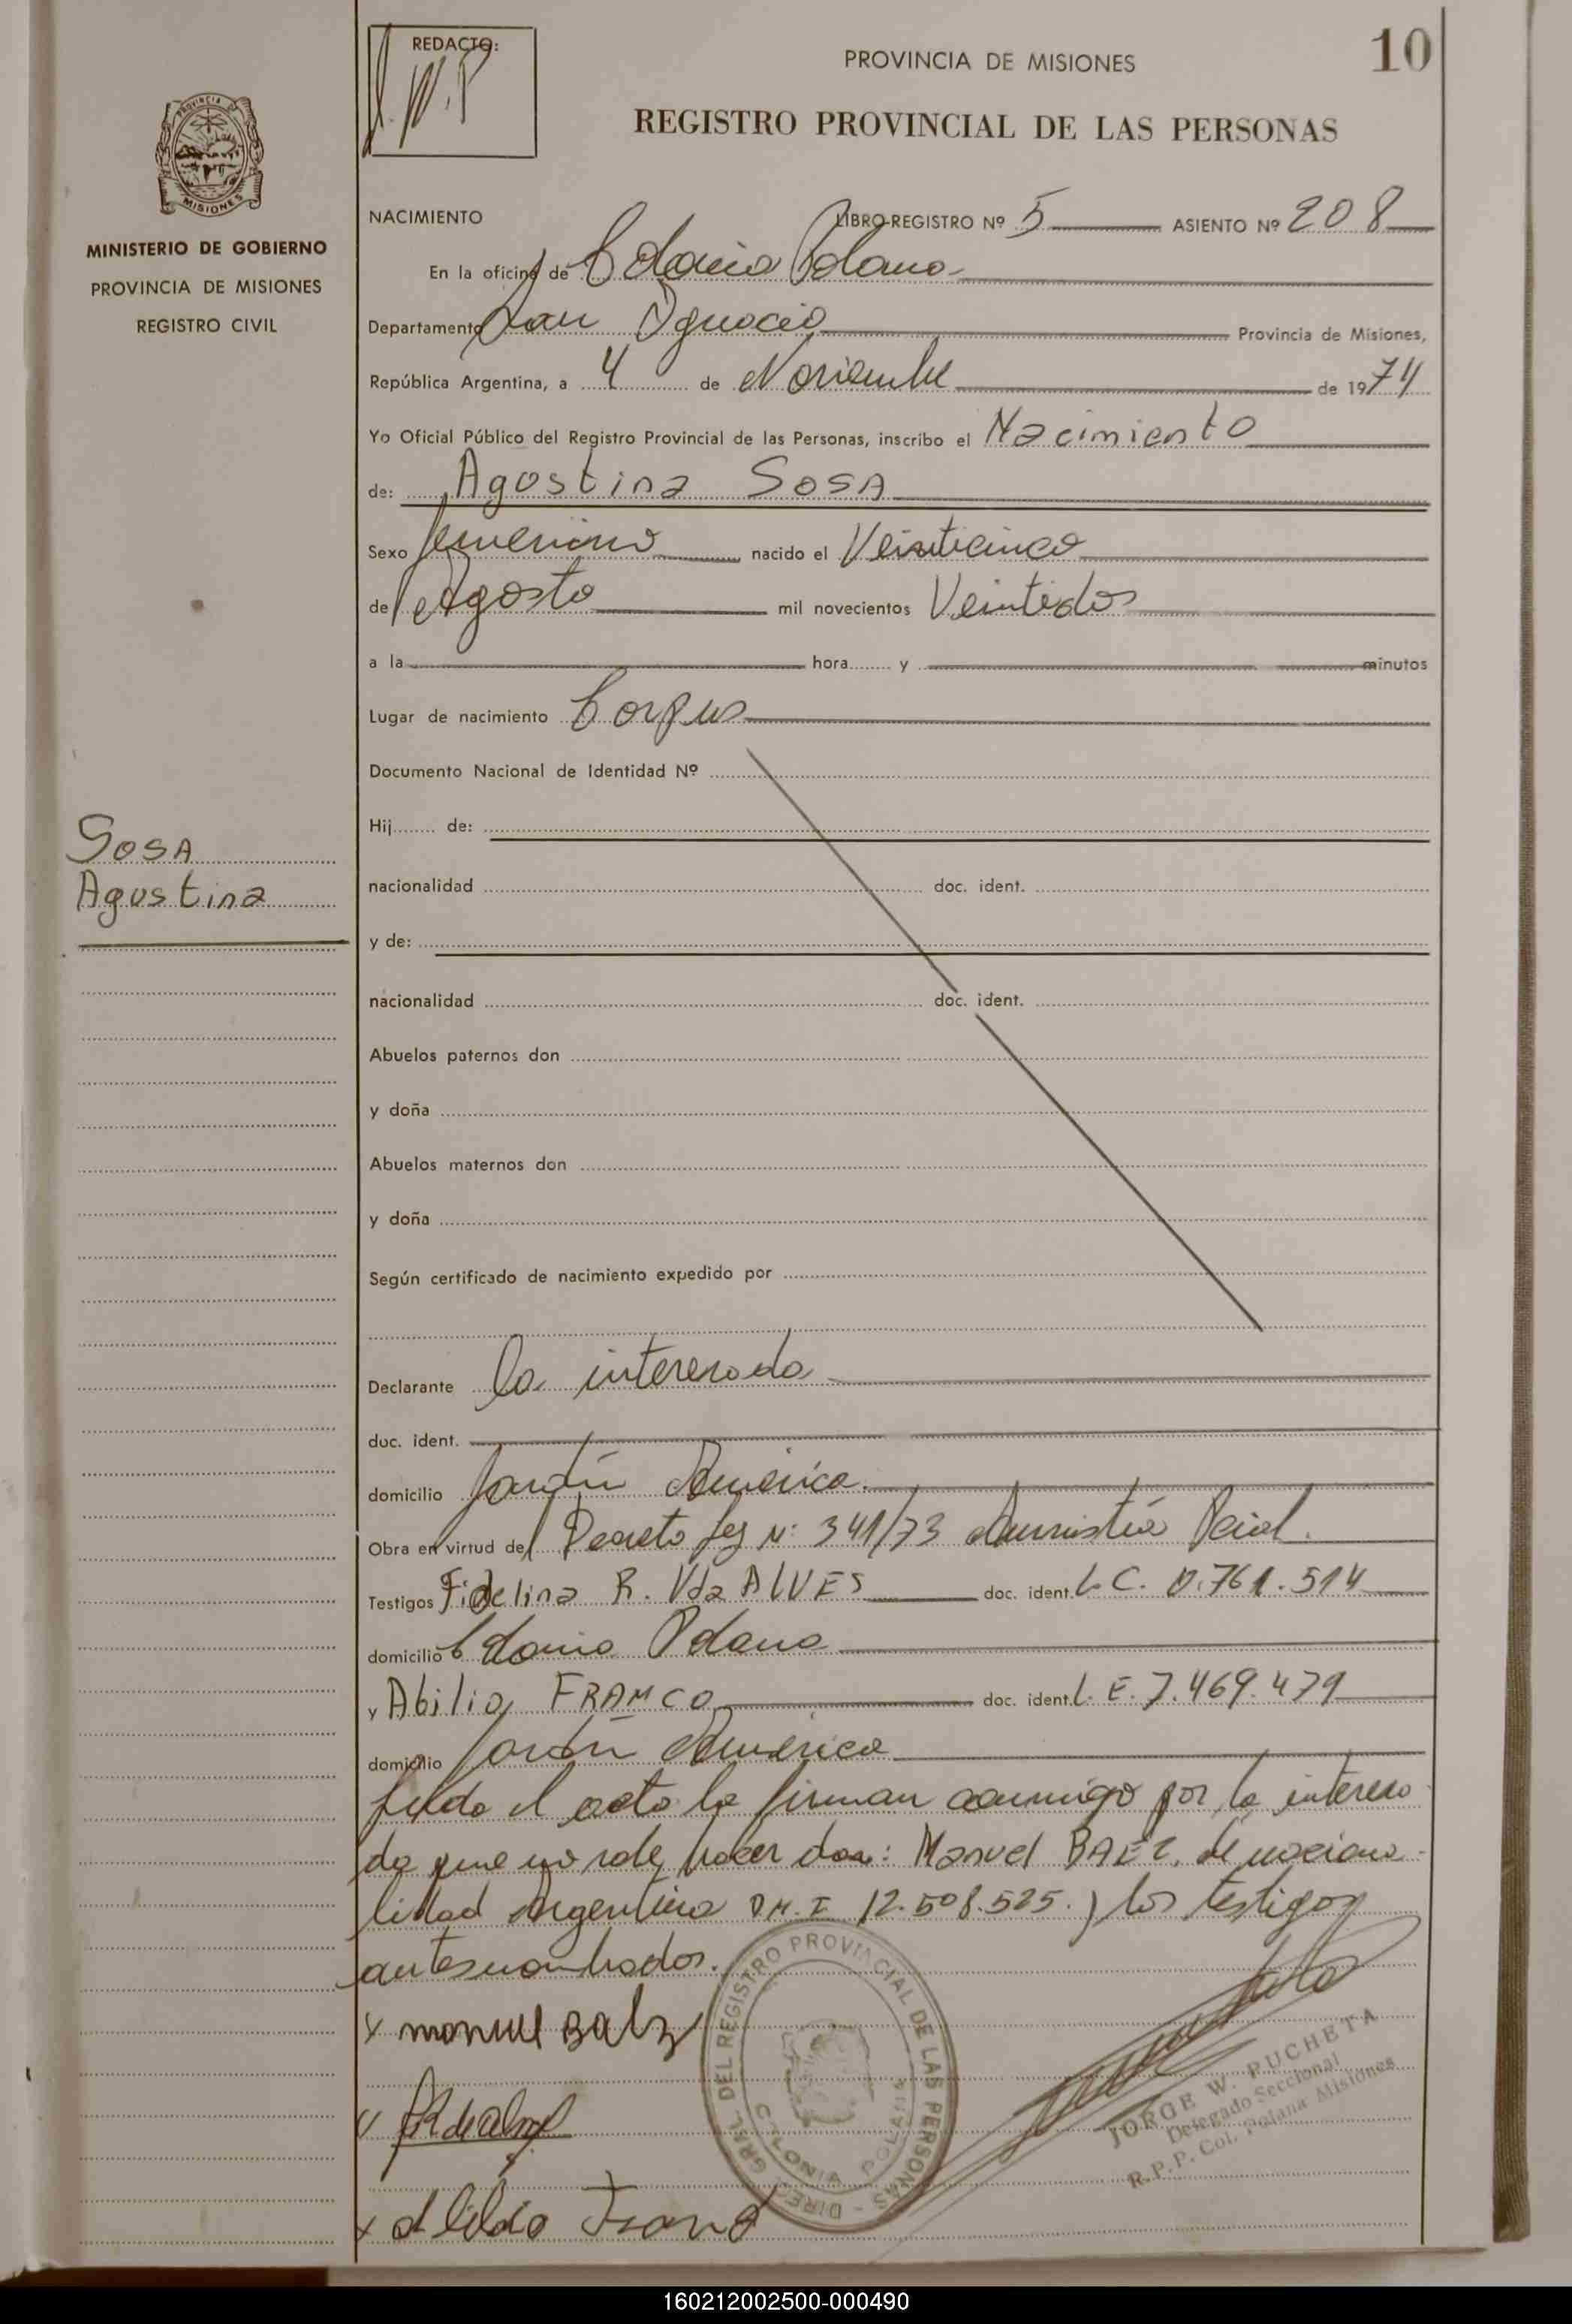 REDACTO:
J.W.P
PROVINCIA DE MISIONES
10
REGISTRO PROVINCIAL DE LAS PERSONAS
PROVINCIA DE
MISIONES
MINISTERIO DE GOBIERNO
PROVINCIA DE MISIONES
REGISTRO CIVIL
NACIMIENTO LIBRO-REGISTRO Nº 5 ASIENTO Nº 208
En la oficina de Colonia Polana
Departamento San Ignacio Provincia de Misiones,
República Argentina, a 4 de Noviembre de 1974
Yo Oficial Público del Registro Provincial de las Personas, inscribo el Nacimiento
de: Agostina SOSA
Sexo femenino nacido el Veinticinco
de Agosto mil novecientos Veintidos
a la hora y minutos
Lugar de nacimiento Corpus
Documento Nacional de Identidad Nº
Hij de:
SOSA
Agostina
nacionalidad doc. ident.
y de:
nacionalidad doc. ident.
Abuelos paternos don
y doña
Abuelos maternos don
y doña
Según certificado de nacimiento expedido por
Declarante la interesada
doc. ident.
domicilio Jardín América.
Obra en virtud del Decreto Ley Nº 341/73 Amnistía Pcial.
Testigos Fidelina R. Vda ALVES doc. ident. L.C. 0.761.514
domicilio Colonia Polana
y Abilio FRANCO doc. ident. L.E. 7.469.479
domicilio Jardín América
leída el acta la firman conmigo por la interesa
da que no sabe hacer don: Manuel BAEZ, de naciona-
lidad Argentina D.N.I 12.508.525. y los testigos
antesnombrados.
x manuel Baez
DIREC. GRSL. DEL REGISTRO PROVINCIAL DE LAS PERSONAS
COLONIA POLANA
JORGE W. PUCHETA
Delegado Seccional
R.P.P. Col. Polana Misiones
160212002500-000490